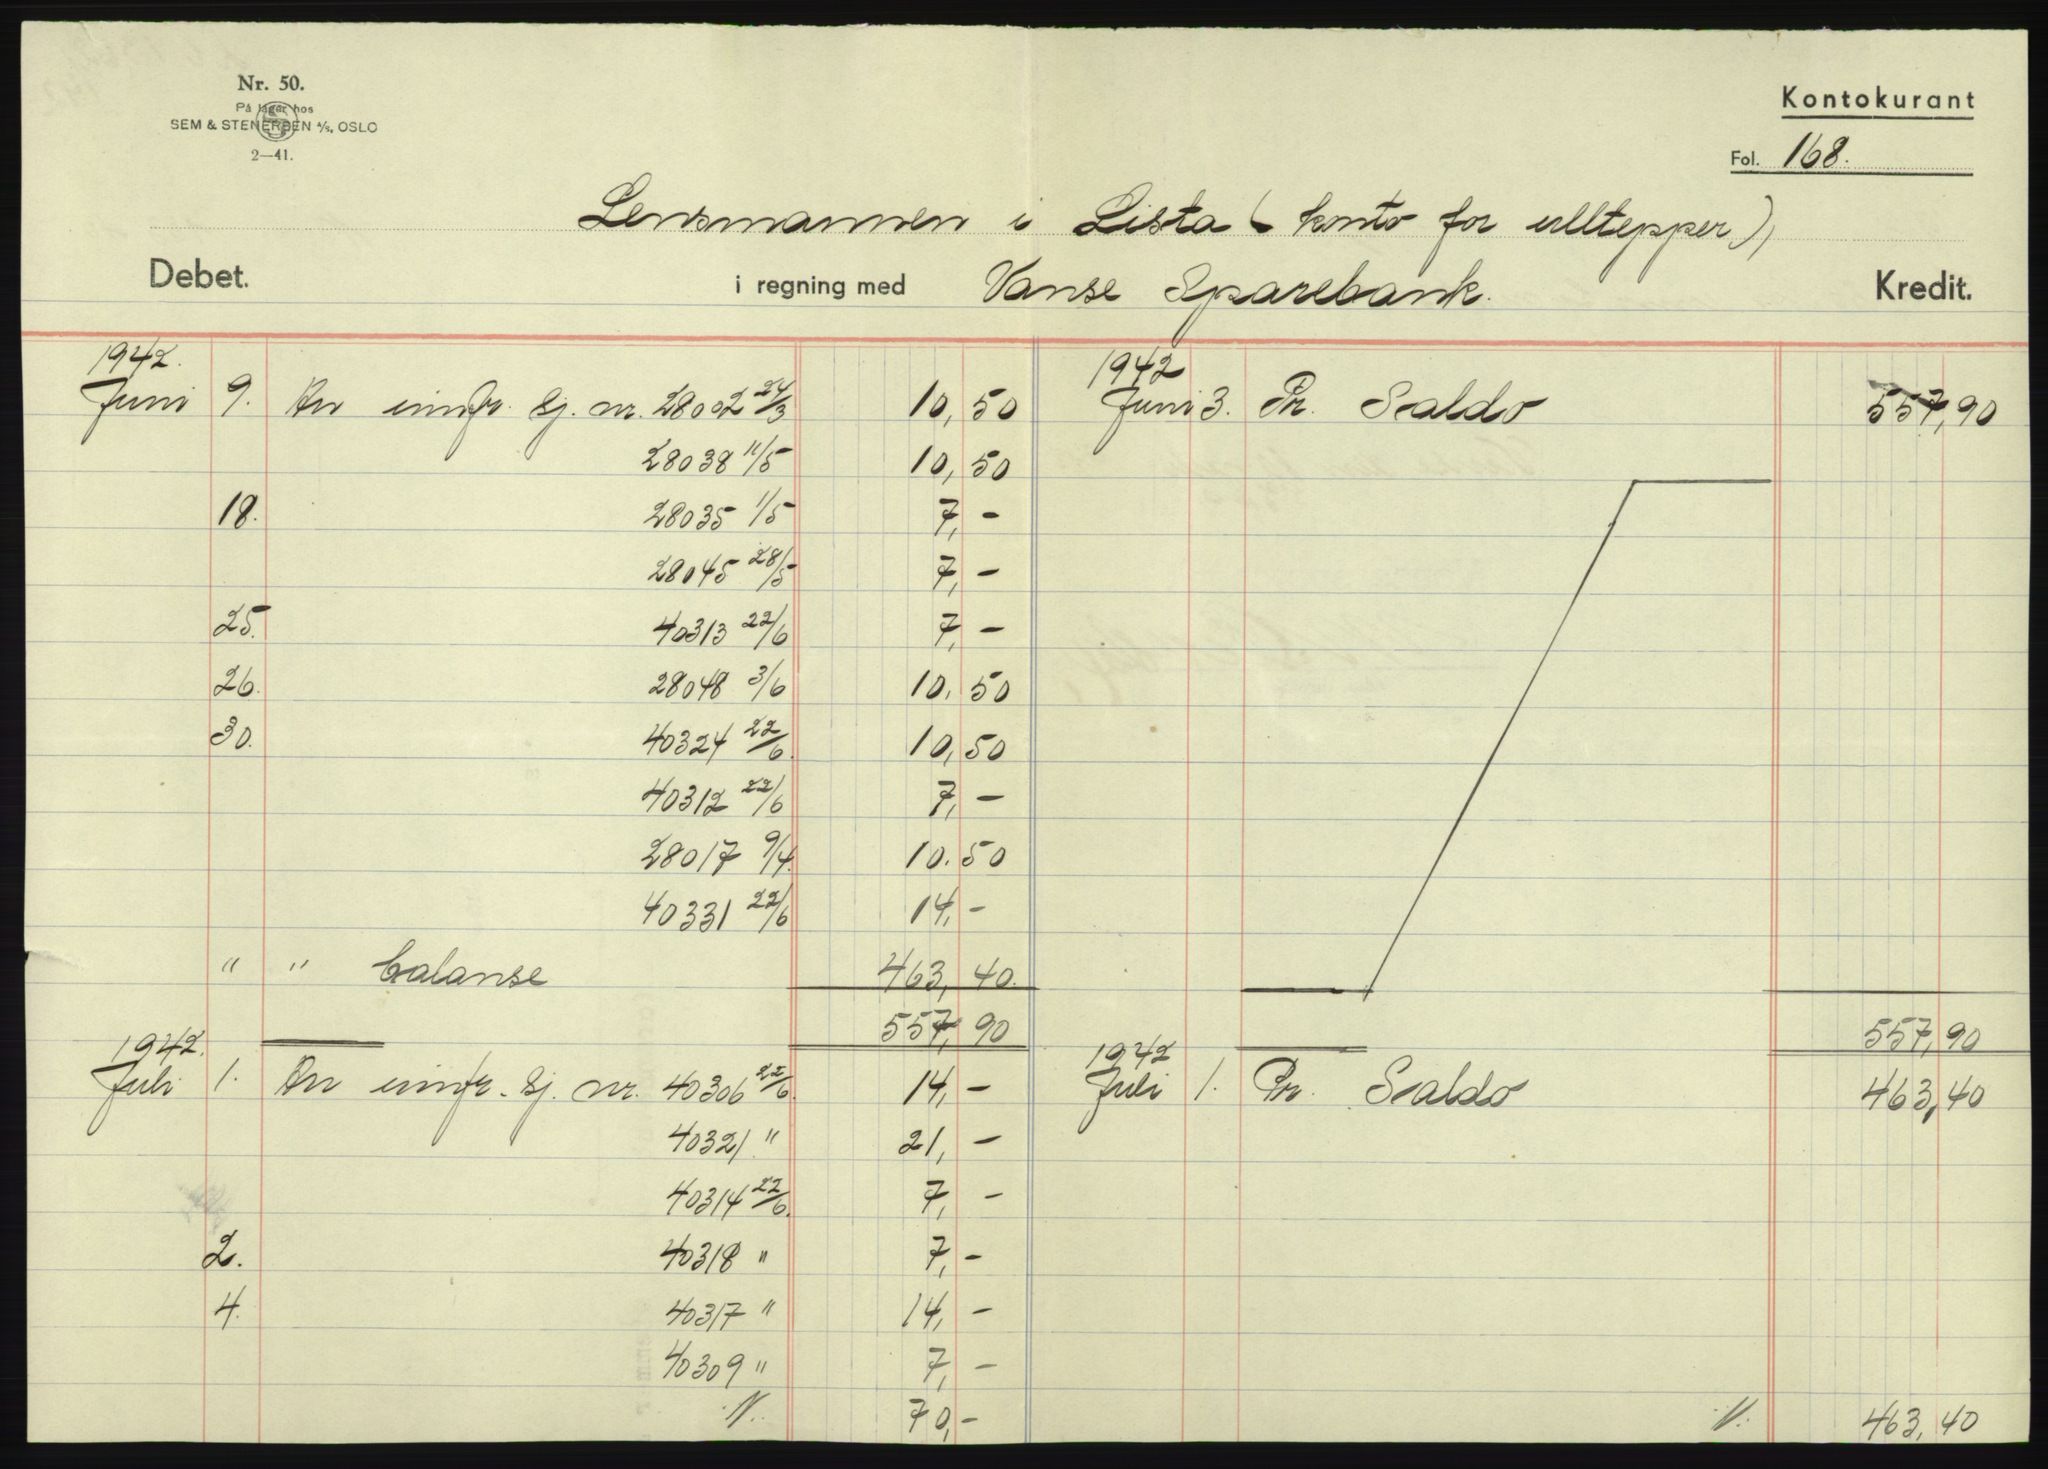 Nr. 50.
På lager hos
SEM & STENERSEN A/S, OSLO
2—41.
Kontokurant
Fol. 168.
Lensmannen i Lista (konto for ulltepper),
Debet. i regning med Vanse Sparebank. Kredit.
1942. 1942
Juni 9. An innfr. sj. nr. 28002 24/3 10,50 Juni 3. Pr. Saldo 557,90
28038 11/5 10,50
18. 28035 1/5 7,-
28045 28/5 7,-
25. 40313 22/6 7,-
26. 28048 3/6 10,50
30. 40324 22/6. 10,50
40312 22/6 7,-
28017 9/4. 10.50
40331 22/6 14,-
" " balanse 463,40.
557,90 557,90
1942. 1942
Juli 1. An innfr. sj. nr. 40306 22/6. 14,- Juli 1. Pr. Saldo 463,40
40321 " 21,-
40314 22/6. 7,-
2. 40318 " 7,-
4. 40317 " 14,-
40309 " 7,-
70,- 463,40